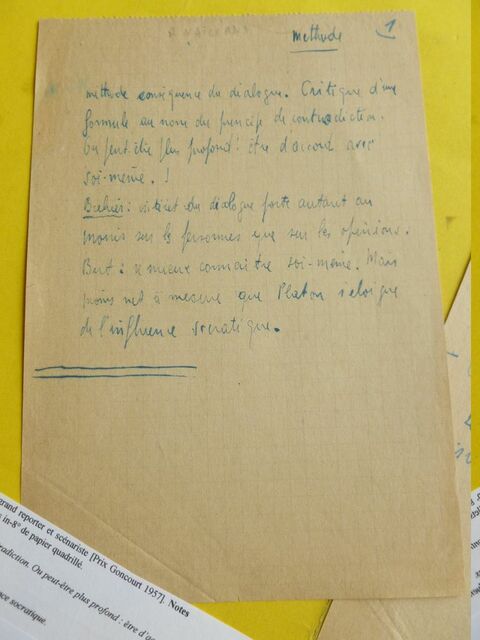 Methode 1
methode conséquence du dialogue. Critique d'une
formule au nom du principe de contradiction.
Ou peut-être plus profond : être d'accord avec
soi-même. !
Brehier : intérêt du dialogue porte autant au
moins sur les personnes que sur les opinions.
But : se mieux connaitre soi-même. Mais
moins net à mesure que Platon s'eloigne
de l'influence socratique.
grand reporter et scénariste [Prix Goncourt 1957]. Notes
in-8° de papier quadrillé.
radiction. Ou peut-être plus profond : être d'ac
ce socratique.